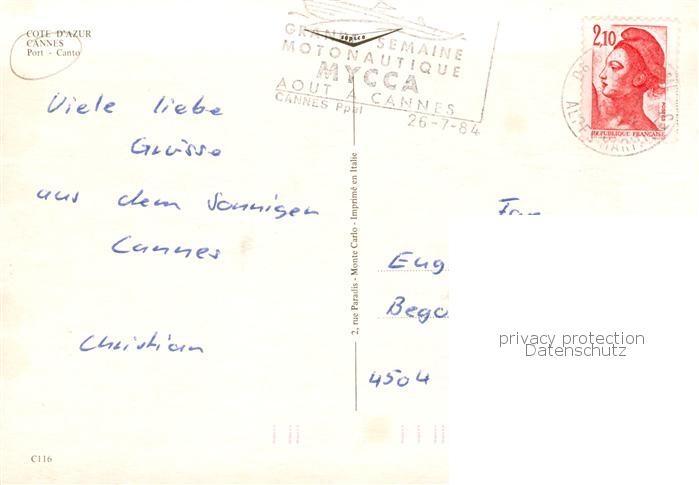 COTE D'AZUR
CANNES
Port - Canto
sépico
GRANDE SEMAINE
MOTONAUTIQUE
MYCCA
AOUT A CANNES
CANNES Ppal 26-7-84
2,10
REPUBLIQUE FRANÇAISE
Viele liebe
Grüsse
aus dem Sonnigen
Cannes
Christian
2, rue Paradis - Monte Carlo - Imprimé en Italie
Eug
Bego
4504
privacy protection
Datenschutz
C116